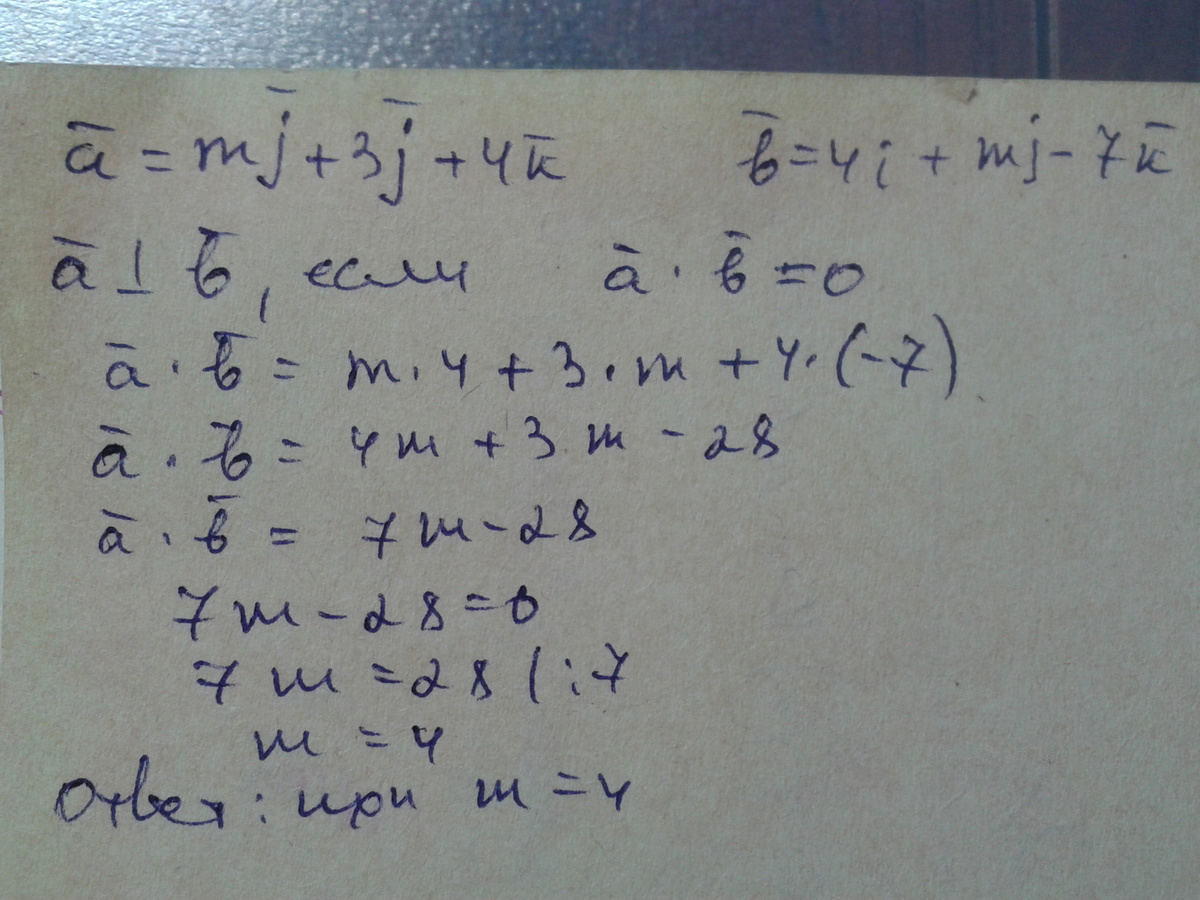 a̅ = mj̅ + 3j̅ + 4k̅   b̅ = 4i + mj - 7k̅
a̅ ⊥ b̅, если   a̅ · b̅ = 0
a̅ · b̅ = m · 4 + 3 · m + 4 · (-7)
a̅ · b̅ = 4m + 3m - 28
a̅ · b̅ = 7m - 28
7m - 28 = 0
7m = 28 | : 7
m = 4
Ответ: при m = 4